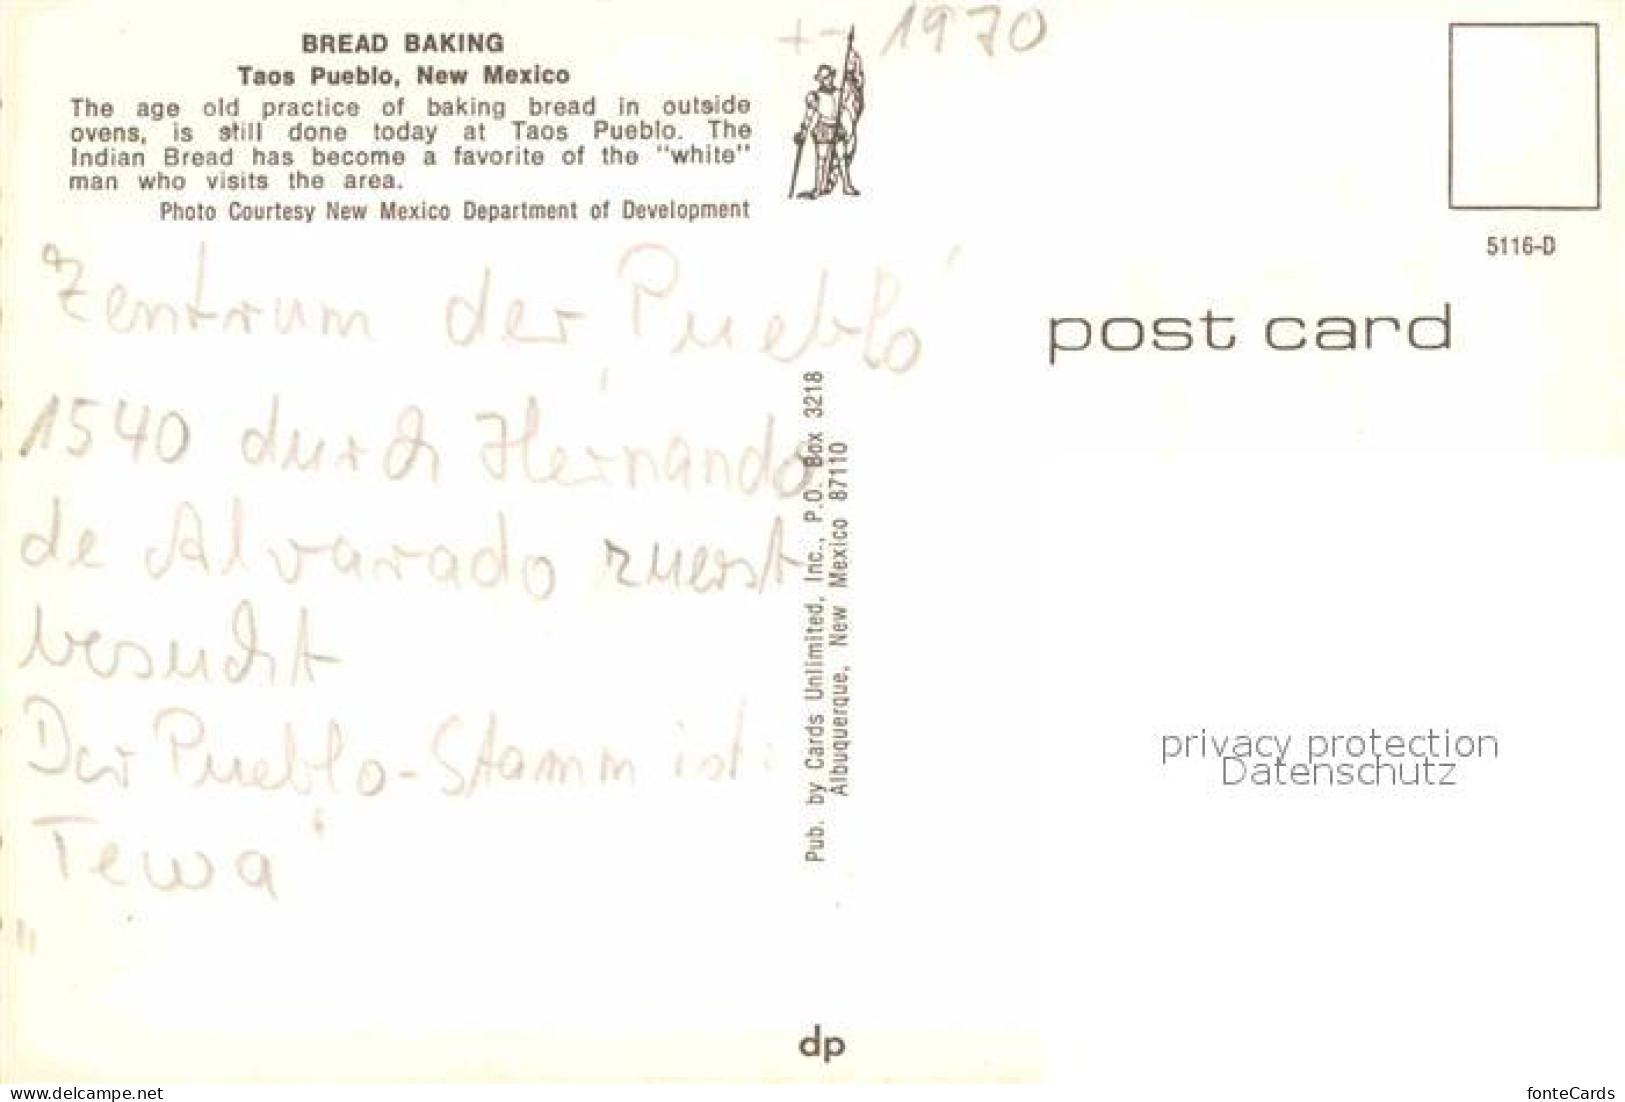 BREAD BAKING
Taos Pueblo, New Mexico
The age old practice of baking bread in outside
ovens, is still done today at Taos Pueblo. The
Indian Bread has become a favorite of the "white"
man who visits the area.
Photo Courtesy New Mexico Department of Development
+- 1970
5116-D
post card
Zentrum der Pueblo
1540 durch Hernando
de Alvarado zuerst
besucht
Der Pueblo-Stamm ist:
Tewa
Pub. by Cards Unlimited, Inc., P.O. Box 3218
Albuquerque, New Mexico 87110
privacy protection
Datenschutz
dp
the-best-of-best
fonteCards